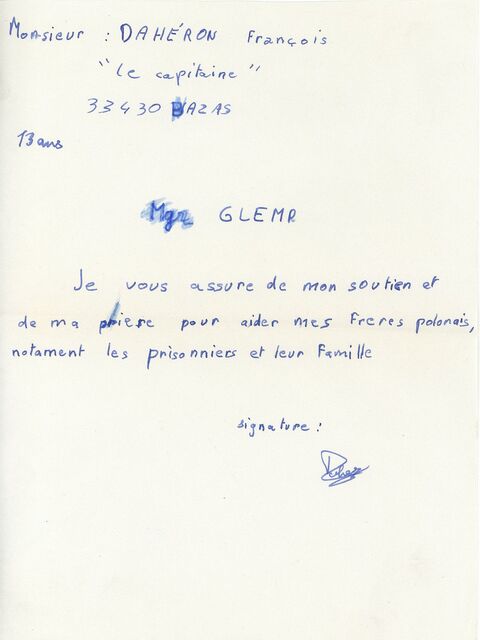 Monsieur : DAHÉRON François
"le capitaine"
33430 BAZAS
13 ans
Mgr GLEMP
Je vous assure de mon soutien et
de ma prière pour aider mes frères polonais,
notament les prisonniers et leur famille
signature :